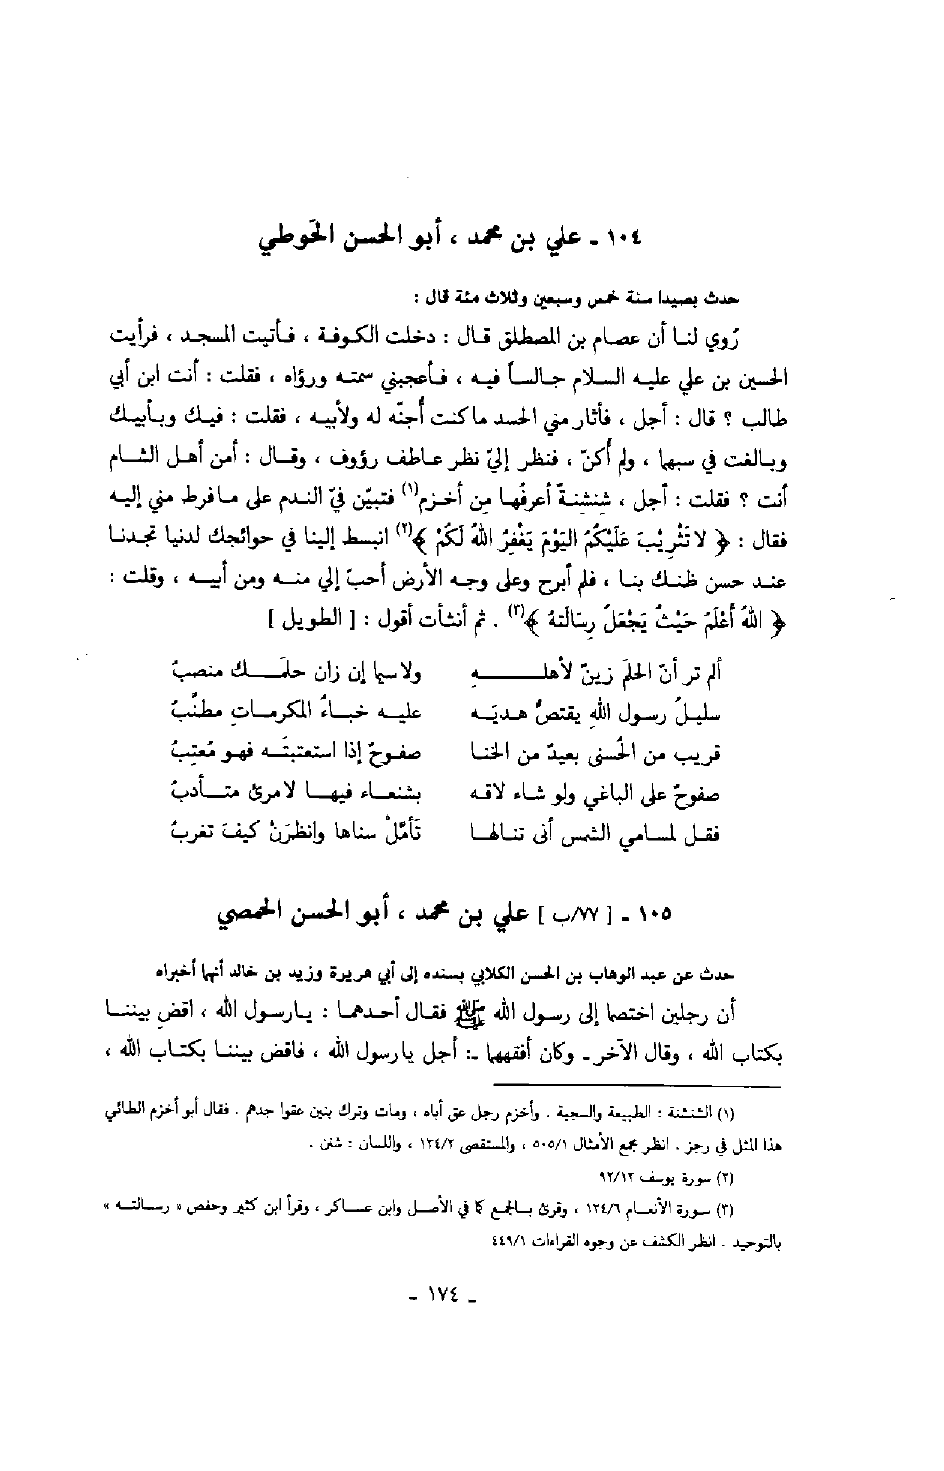 ١٠٤ ـ علي بن محمد ، أبو الحسن الحَوطي
حدث بصيدا سنة خمس وسبعين وثلاث مئة قال :
رُوي لنا أن عصام بن المصطلق قال : دخلت الكوفة ، فأتيت المسجد ، فرأيت
الحسين بن علي عليه السلام جالساً فيه ، فأعجبني سمته ورؤاه ، فقلت : أنت ابن أبي
طالب ؟ قال : أجل ، فأثار مني الحسد ما كنت أُجنّه له ولأبيه ، فقلت : فيك وبأبيك
وبالغت في سبهما ، ولم أكنّ ، فنظر إليّ نظر عاطف رؤوف ، وقال : أمن أهل الشام
أنت ؟ فقلت : أجل ، شنشنةٌ أعرفُها مِن أخزم(١) فتبيّن فيّ الندم على ما فرط مني إليه
فقال : ﴿ لا تَثْرِيْبَ عَلَيْكُمُ اليَوْمَ يَغْفِرُ اللهُ لَكُمْ ﴾(٢) انبسط إلينا في حوائجك لدنيا تجدنا
عند حسن ظنك بنا ، فلم أبرح وعلى وجه الأرض أحبّ إلي منه ومن أبيه ، وقلت :
﴿ اللهُ أَعْلَمُ حَيْثُ يَجْعَلُ رِسَالَتَهُ ﴾(٣) . ثم أنشأت أقول : [ الطويل ]
ألم تر أنّ الحلمَ زينٌ لأهله ولا سيما إن زان حلمَك منصبُ
سليلُ رسول اللهِ يقتصُّ هديَه عليه خباءُ المكرماتِ مطنَّبُ
قريب من الحُسنى بعيدٌ من الخنا صفوحٌ إذا استعتبتَه فهو مُعتِبُ
صفوحٌ على الباغي ولو شاء لاقه بشنعاء فيها لامرئ متأدبُ
فقل لمسامي الشمس أنى تنالها تأمَّلْ سناها وانظرَنْ كيفَ تغربُ
١٠٥ ـ [ ٧٧/ب ] علي بن محمد ، أبو الحسن الحمصي
حدث عن عبد الوهاب بن الحسن الكلابي بسنده إلى أبي هريرة وزيد بن خالد أنهما أخبراه
أن رجلين اختصما إلى رسول الله ﷺ فقال أحدهما : يا رسول الله ، اقضِ بيننا
بكتاب الله ، وقال الآخر ـ وكان أفقههما ـ : أجل يا رسول الله ، فاقض بيننا بكتاب الله ،
(١) الشنشنة : الطبيعة والسجية . وأخزم رجل عق أباه ، ومات وترك بنين عقوا جدهم . فقال أبو أخزم الطائي
هذا المثل في رجز . انظر مجمع الأمثال ٥٠٥/١ ، والمستقصى ١٣٤/٢ ، واللسان : شنن .
(٢) سورة يوسف ٩٢/١٢
(٣) سورة الأنعام ١٢٤/٦ ، وقرئ بالجمع كما في الأصل وابن عساكر ، وقرأ ابن كثير وحفص « رسالته »
بالتوحيد . انظر الكشف عن وجوه القراءات ٤٤٩/١
ـ ١٧٤ ـ